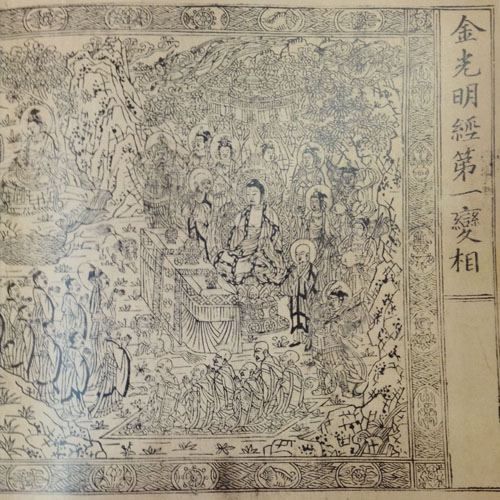 金光明經第一變相